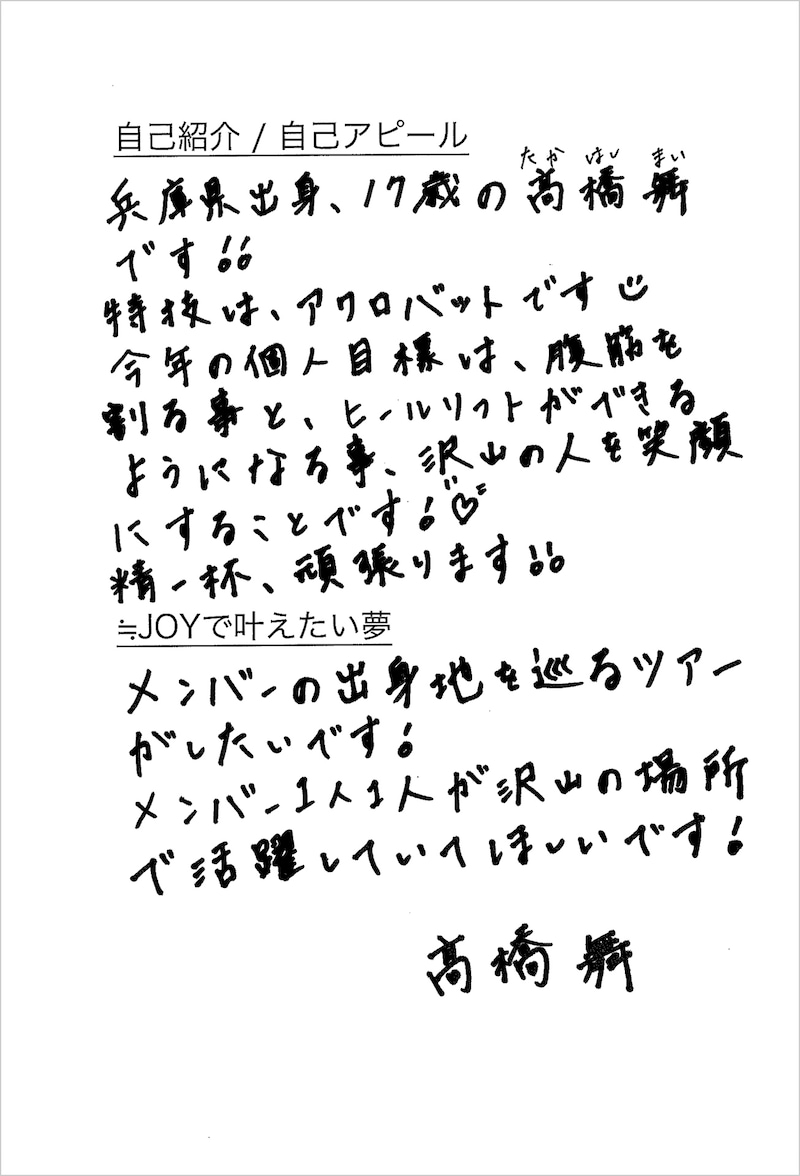 自己紹介 / 自己アピール
たか はし まい
兵庫県出身、17歳の髙橋舞
です!!
特技は、アクロバットです
今年の個人目標は、腹筋を
割る事と、ヒールリフトができる
ようになる事、沢山の人を笑顔
にすることです!♡
精一杯、頑張ります!!
≒JOYで叶えたい夢
メンバーの出身地を巡るツアー
がしたいです!
メンバー1人1人が沢山の場所
で活躍していてほしいです!
髙橋舞